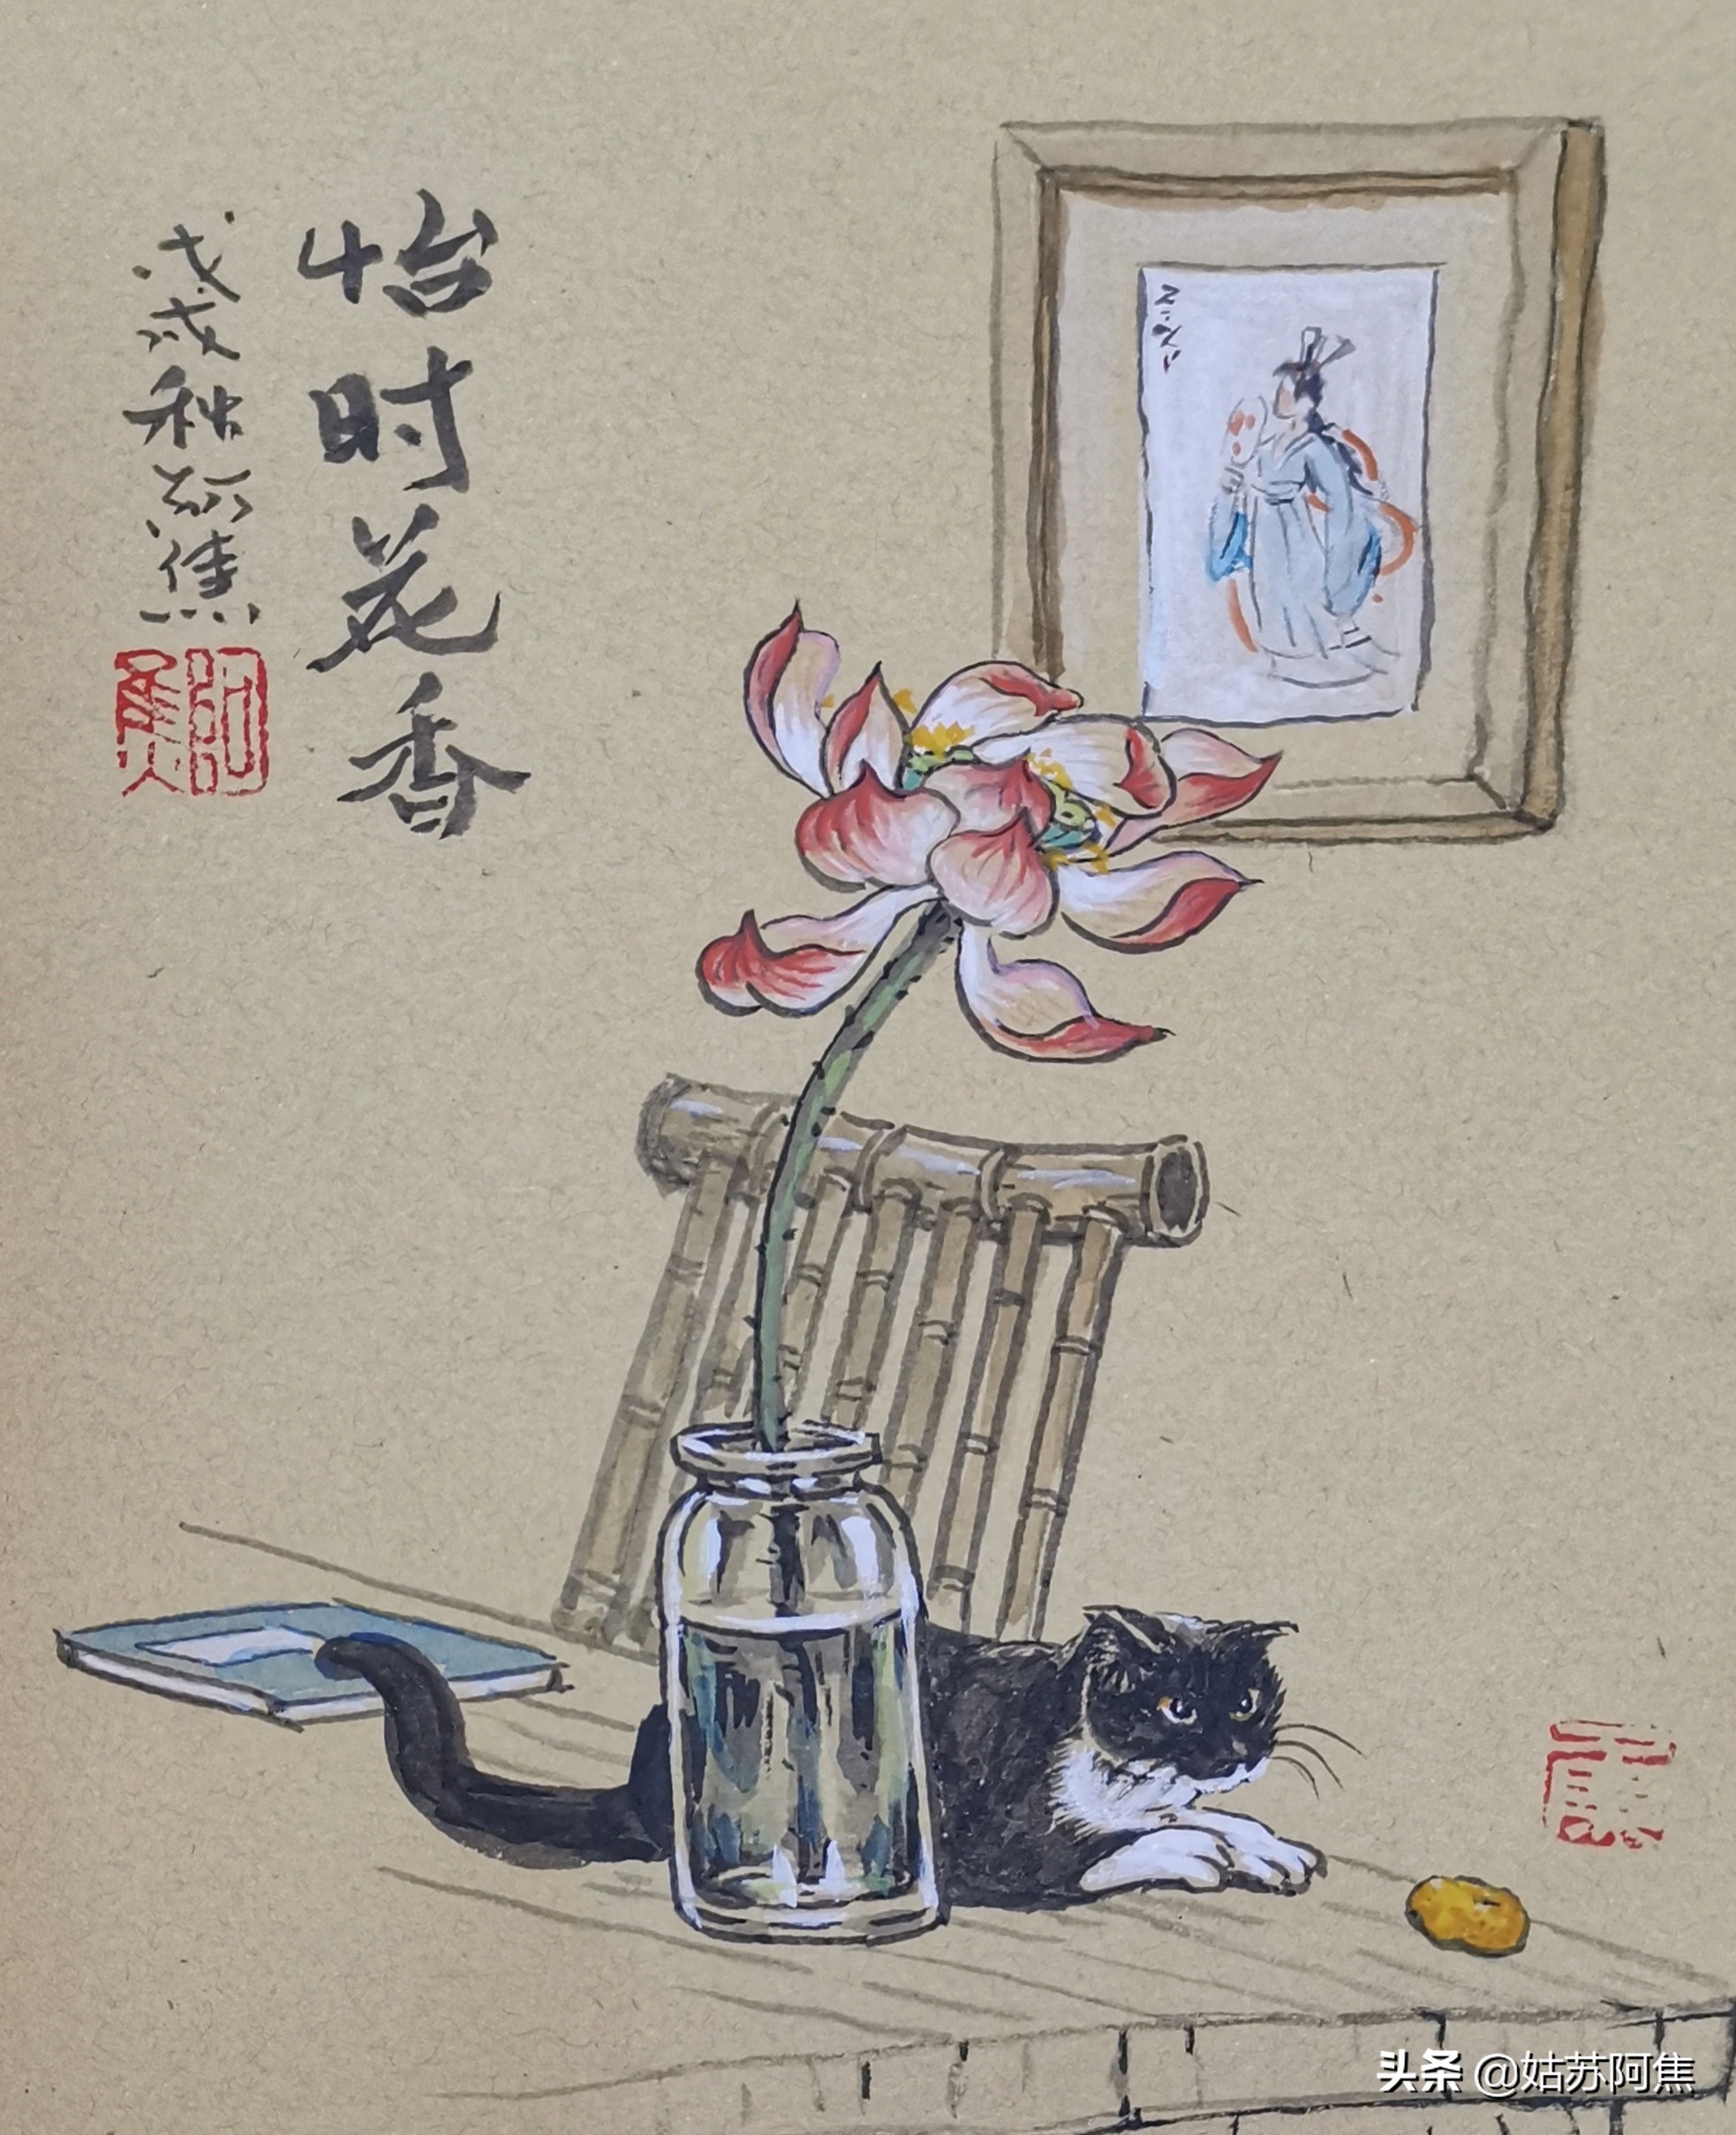 怡时花香
戊戌秋阿焦
阿焦
头条 @姑苏阿焦